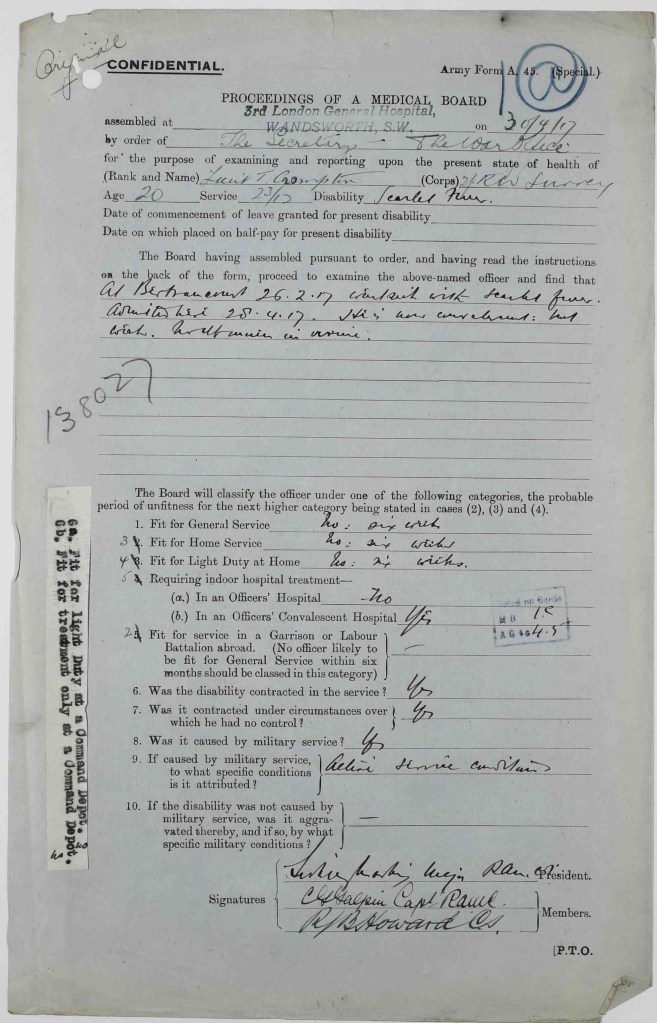 Original
CONFIDENTIAL.
Army Form A. 45. (Special.)
PROCEEDINGS OF A MEDICAL BOARD
3rd London General Hospital,
assembled at WANDSWORTH, S.W. on 30/4/17
by order of The Secretary - The War Office
for the purpose of examining and reporting upon the present state of health of
(Rank and Name) Lieut T. Crompton (Corps) Surrey
Age 20 Service Disability Scarlet Fever.
Date of commencement of leave granted for present disability
Date on which placed on half-pay for present disability
The Board having assembled pursuant to order, and having read the instructions
on the back of the form, proceed to examine the above-named officer and find that
At Bertrancourt 26.2.17 with scarlet fever.
Admitted here 28.4.17. He is now convalescent: but
weak. No albumin in urine.
138027
The Board will classify the officer under one of the following categories, the probable
period of unfitness for the next higher category being stated in cases (2), (3) and (4).
1. Fit for General Service No: six weeks
3 2. Fit for Home Service No: six weeks
4 3. Fit for Light Duty at Home No: six weeks.
5 4. Requiring indoor hospital treatment—
(a.) In an Officers' Hospital No
(b.) In an Officers' Convalescent Hospital Yes
2 5. Fit for service in a Garrison or Labour
Battalion abroad. (No officer likely to
be fit for General Service within six
months should be classed in this category) —
6. Was the disability contracted in the service? Yes
7. Was it contracted under circumstances over
which he had no control? Yes
8. Was it caused by military service? Yes
9. If caused by military service,
to what specific conditions
is it attributed? Active service conditions
10. If the disability was not caused by
military service, was it aggra-
vated thereby, and if so, by what
specific military conditions? —
6a. Fit for light Duty at a Command Depot. No
6b. Fit for treatment only at a Command Depot. No
Major RAMC President.
Signatures
Galpin Capt RAMC.
Howard Cs. Members.
[P.T.O.